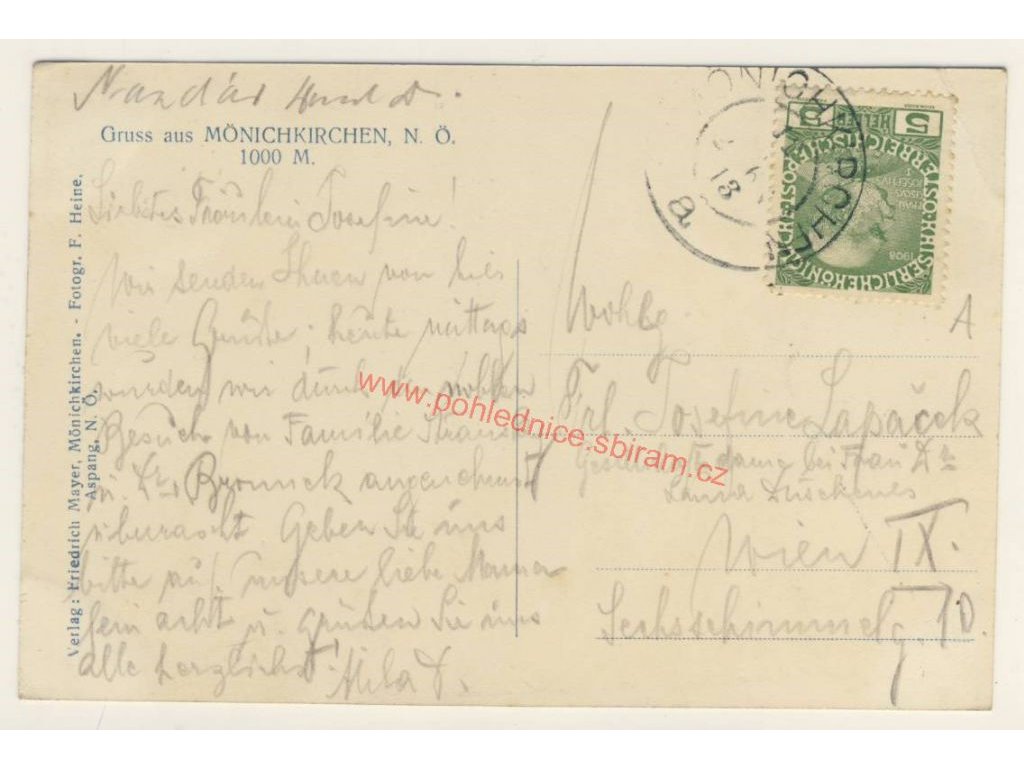 Nazdar
Gruss aus MÖNICHKIRCHEN, N. Ö.
1000 M.
Liebstes Fräulein Josefine!
Wir senden Ihnen von hier
viele Grüße; heute mittags
wurden wir durch
Besuch von Familie
u. Dr. angenehmst
überrascht. Geben Sie uns
bitte auf unsere liebe Mama
fein acht u. grüßen Sie uns
alle herzlichst!
Verlag: Friedrich Mayer, Mönichkirchen. - Fotogr. F. Heine,
Aspang, N. Ö.
MÖNICHKIRCHEN
18
a
5 HELLER 5
KAISERLICHE KÖNIGLICHE ÖSTERREICHISCHE POST
1908
Wohlg.
A
Frl. Josefine Lapáček
bei Frau Dr.
Wien IX.
Sechsschimmelg. 10.
www.pohlednice.sbiram.cz